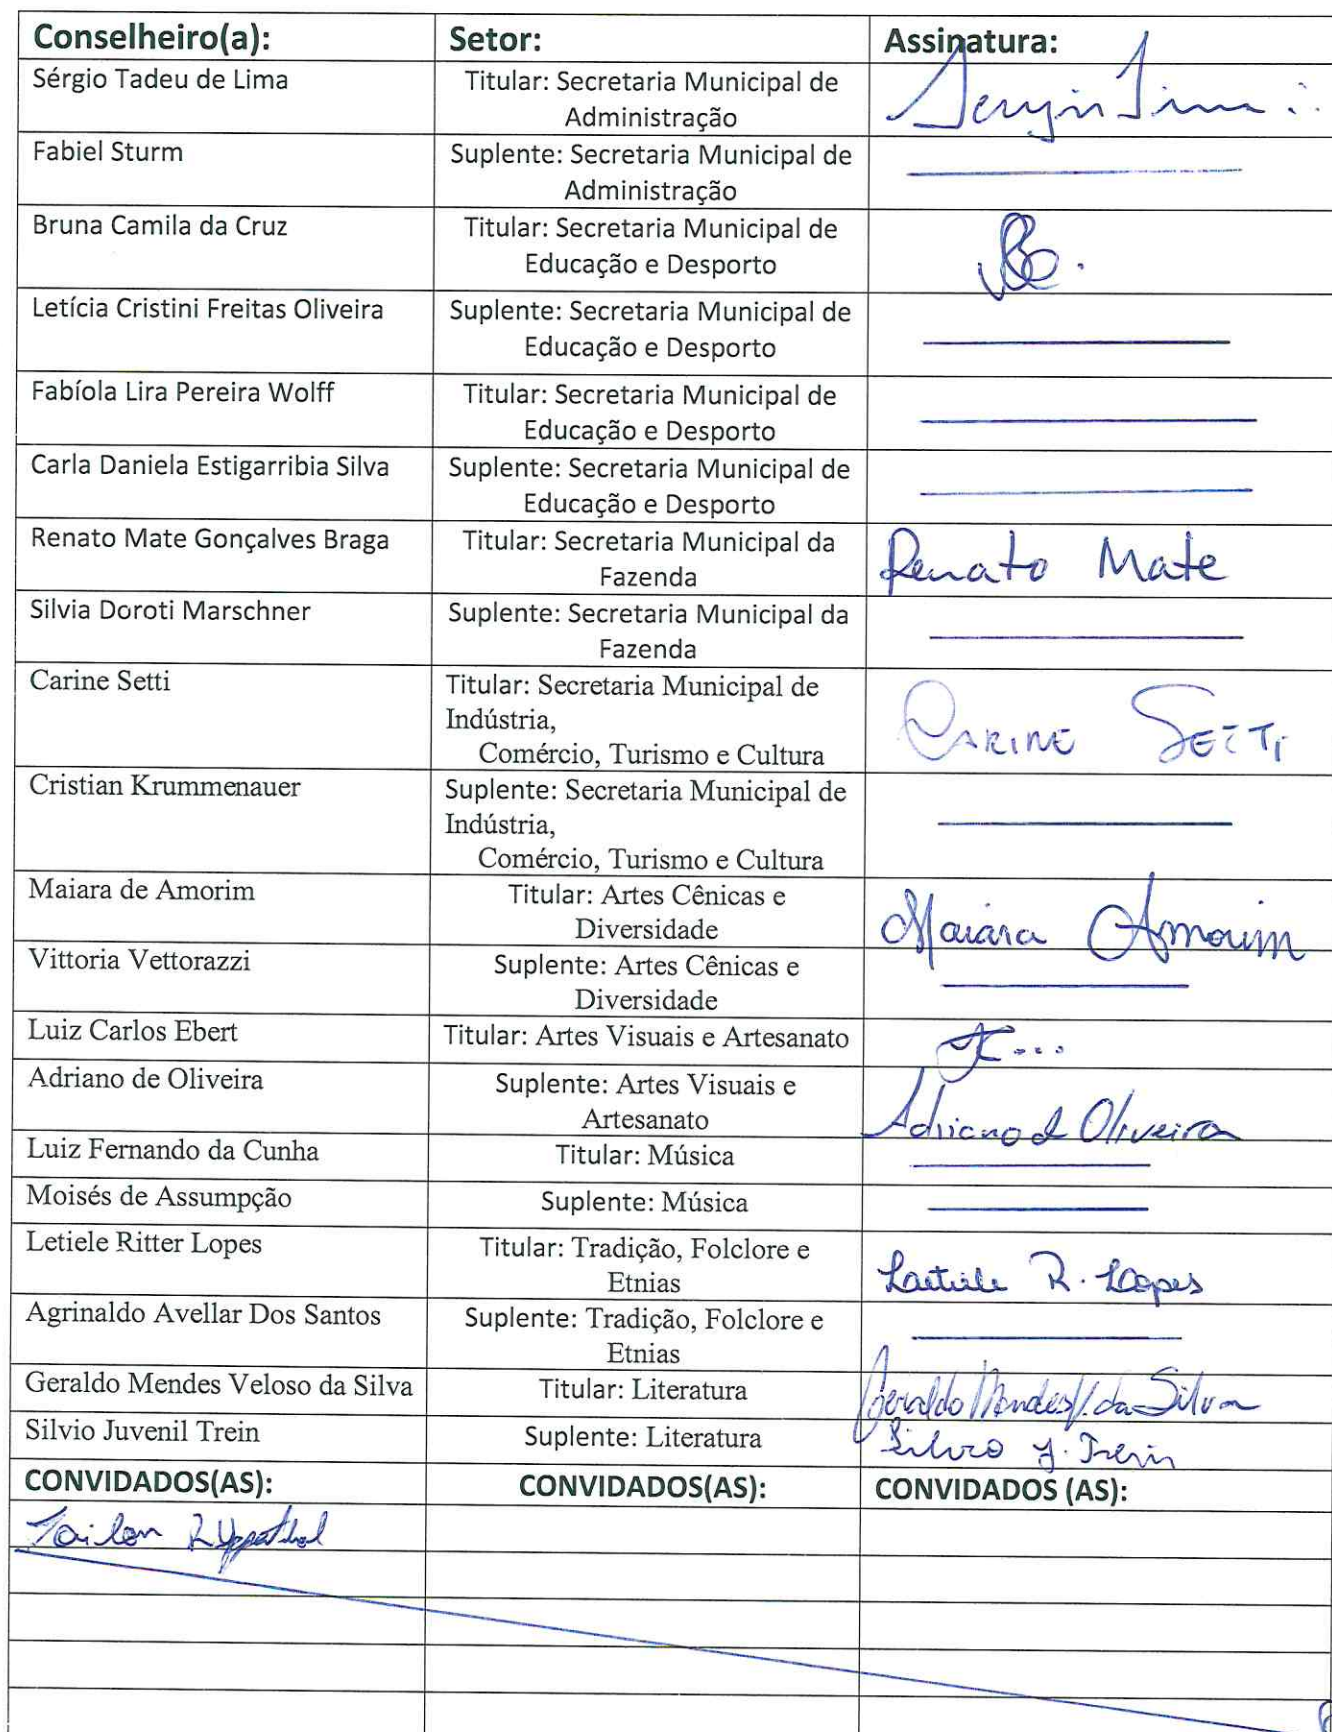 Conselheiro(a): Setor: Assinatura:
Sérgio Tadeu de Lima Titular: Secretaria Municipal de
Administração
Sergio Lima
Fabiel Sturm Suplente: Secretaria Municipal de
Administração
Bruna Camila da Cruz Titular: Secretaria Municipal de
Educação e Desporto
Letícia Cristini Freitas Oliveira Suplente: Secretaria Municipal de
Educação e Desporto
Fabíola Lira Pereira Wolff Titular: Secretaria Municipal de
Educação e Desporto
Carla Daniela Estigarribia Silva Suplente: Secretaria Municipal de
Educação e Desporto
Renato Mate Gonçalves Braga Titular: Secretaria Municipal da
Fazenda
Renato Mate
Silvia Doroti Marschner Suplente: Secretaria Municipal da
Fazenda
Carine Setti Titular: Secretaria Municipal de
Indústria,
Comércio, Turismo e Cultura
CARINE SETTI
Cristian Krummenauer Suplente: Secretaria Municipal de
Indústria,
Comércio, Turismo e Cultura
Maiara de Amorim Titular: Artes Cênicas e
Diversidade
Maiara Amorim
Vittoria Vettorazzi Suplente: Artes Cênicas e
Diversidade
Luiz Carlos Ebert Titular: Artes Visuais e Artesanato
Adriano de Oliveira Suplente: Artes Visuais e
Artesanato
Adriano d Oliveira
Luiz Fernando da Cunha Titular: Música
Moisés de Assumpção Suplente: Música
Letiele Ritter Lopes Titular: Tradição, Folclore e
Etnias
Letiele R. Lopes
Agrinaldo Avellar Dos Santos Suplente: Tradição, Folclore e
Etnias
Geraldo Mendes Veloso da Silva Titular: Literatura Geraldo Mendes V. da Silva
Silvio Juvenil Trein Suplente: Literatura Silvio J. Trein
CONVIDADOS(AS): CONVIDADOS(AS): CONVIDADOS (AS):